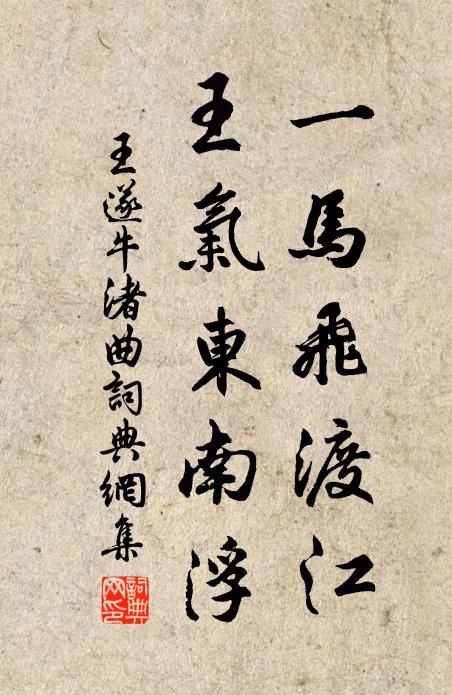 一馬飛渡江
王氣東南浮
王遂牛渚曲詞典網集
詞典
网印